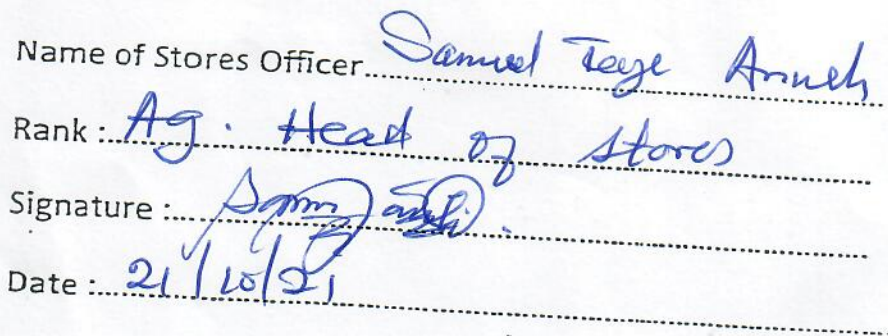 Name of Stores Officer........ Samuel Teye
Rank :.. Ag. Head of Stores
Signature :...
Date :.. 21/10/21